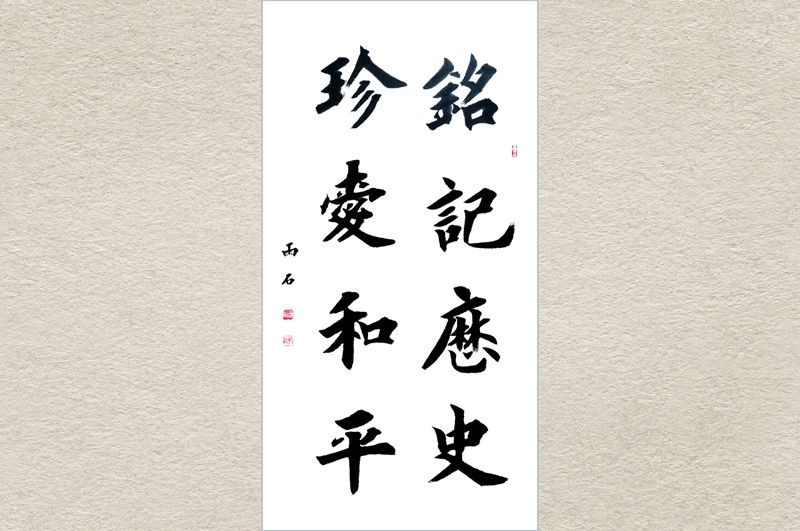 銘記歷史
珍愛和平
雨石